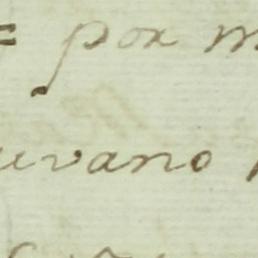 = por m
uvano